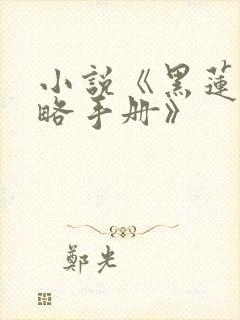 小說《黑蓮
略手册》
鄭光